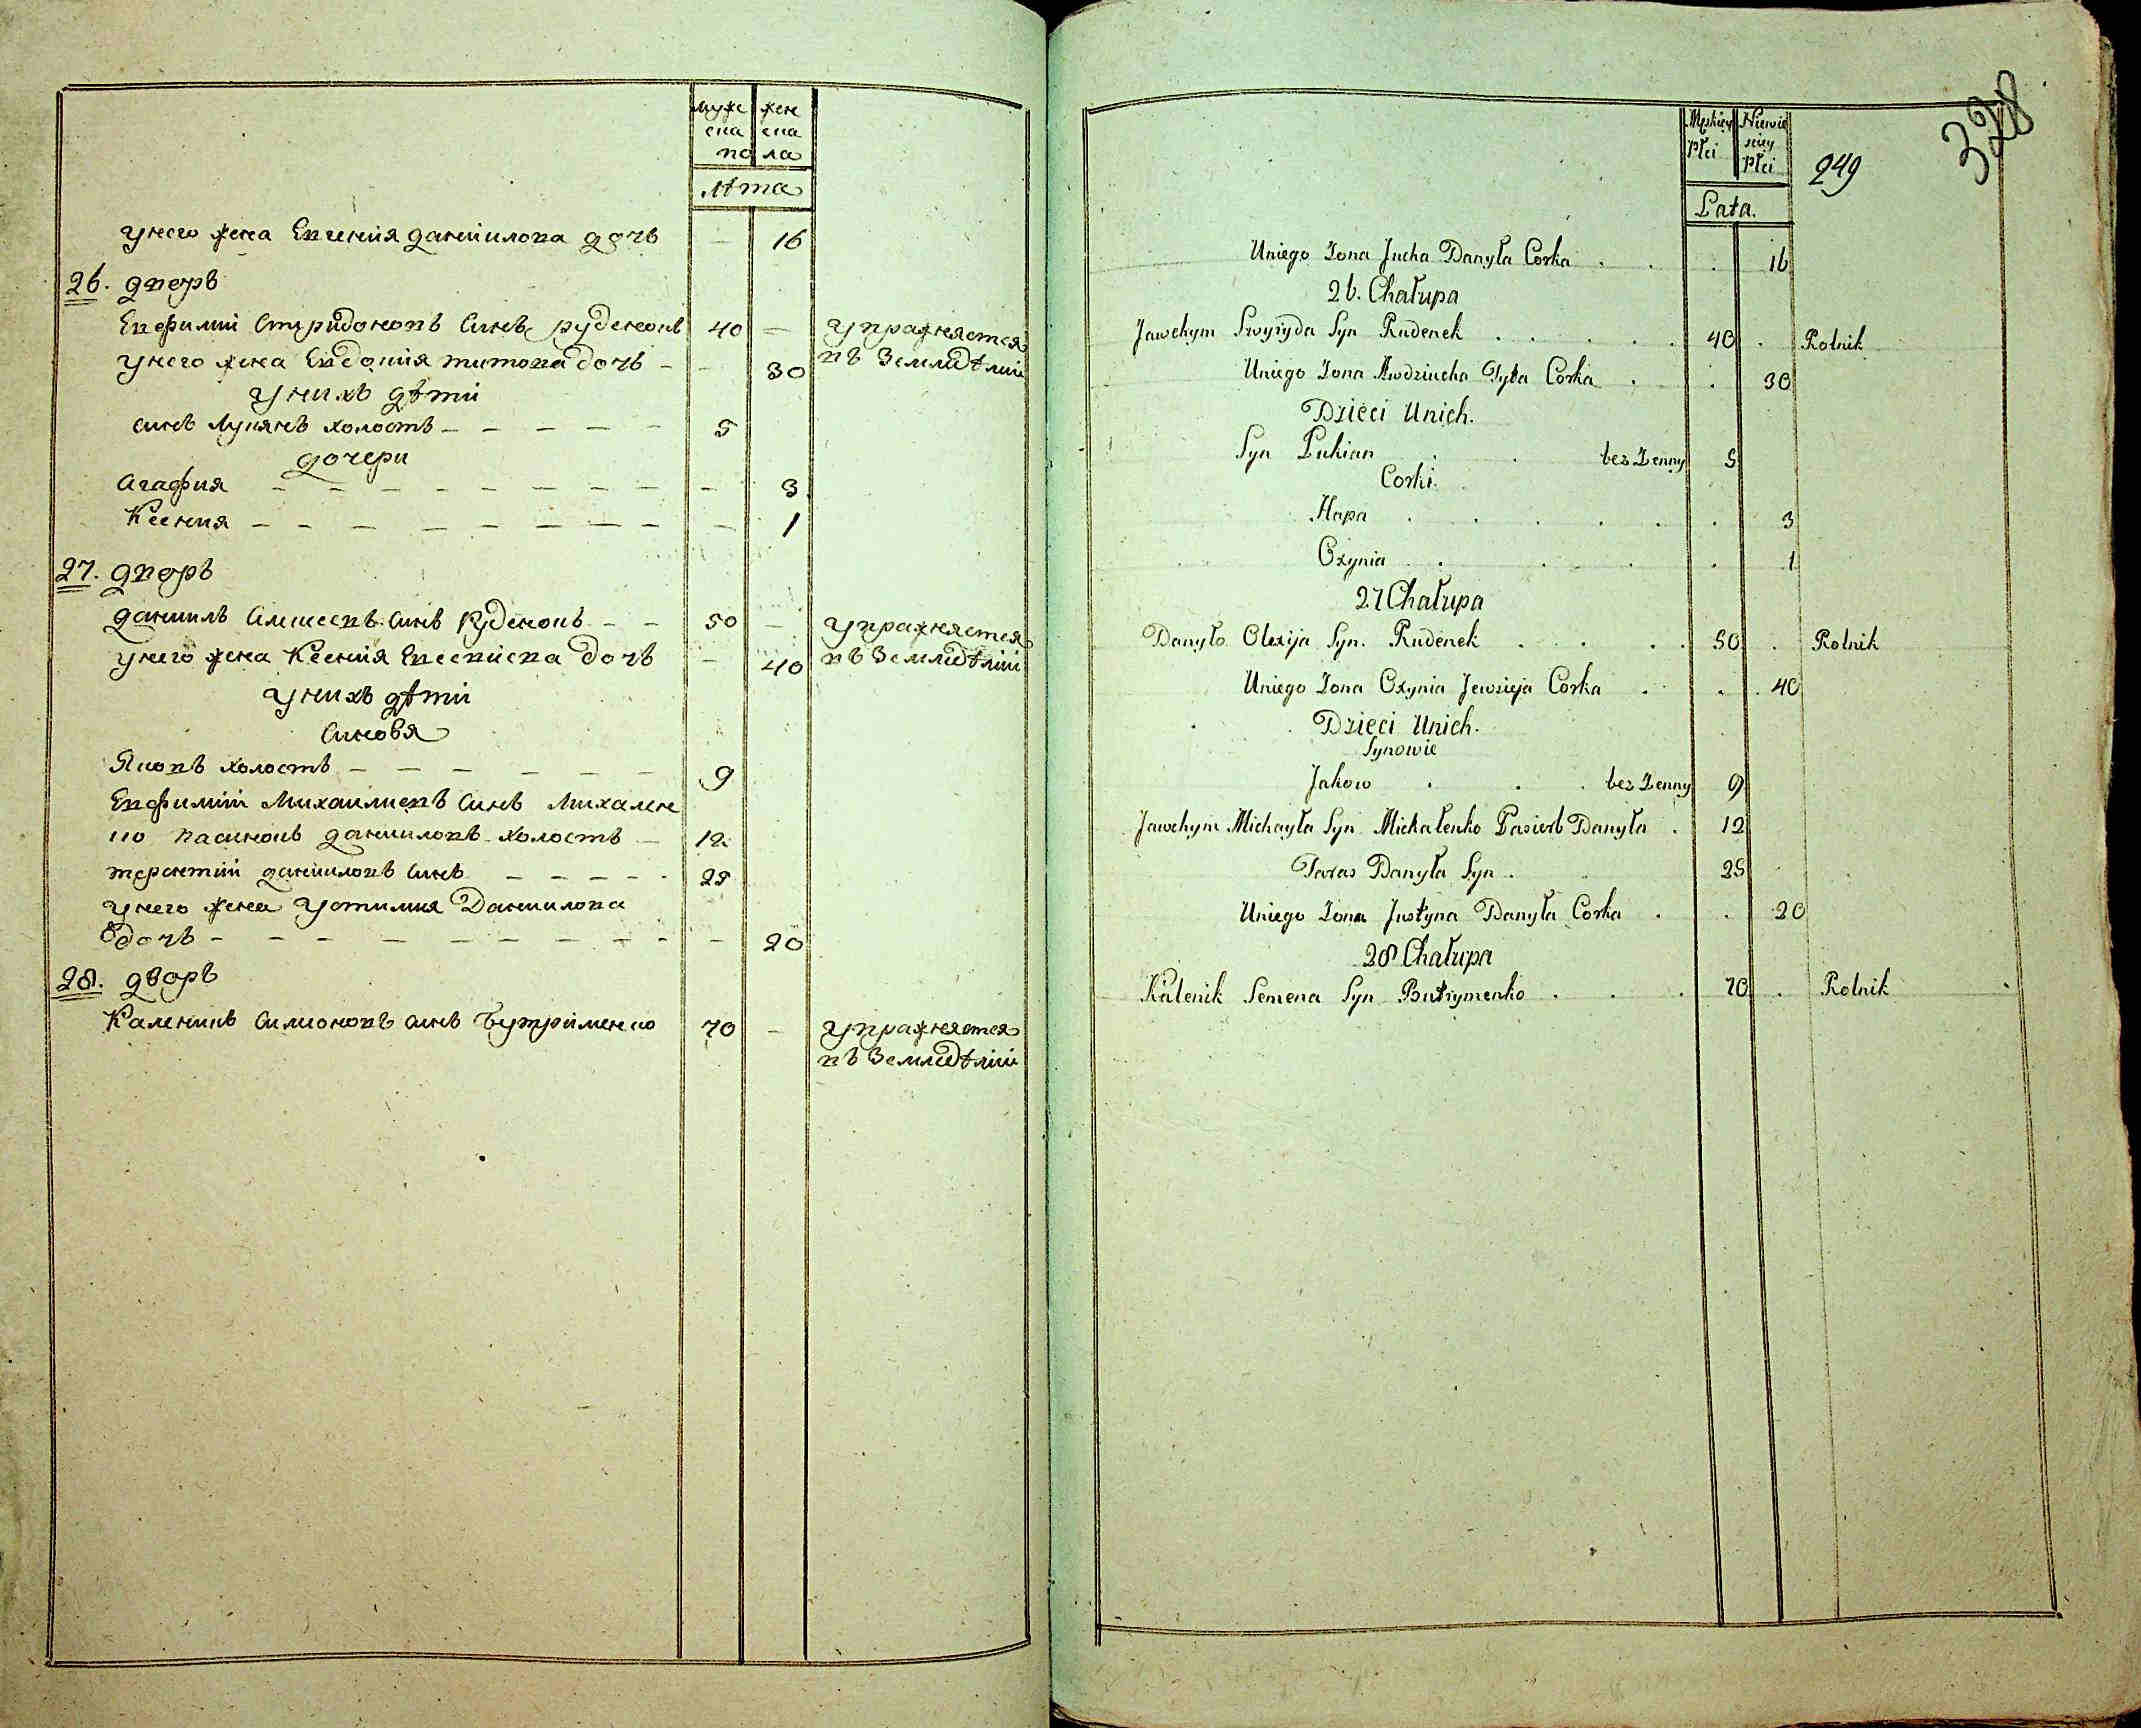 мужеска жен
ска
пола
Лѣта
у него жена Евгения даниилова дочь — 16
26. дворъ
Евфимий Спиридоновъ Синъ руденокъ 40 — упражняется
у него жена Евдокия титова дочь — — 30 въ Землидѣлии
у нихъ дѣти
синъ Лукиянъ холостъ — — — — — 5
дочери
Агафия — — — — — — — — — 3
Ксения — — — — — — — — — 1
27. дворъ
даниилъ Алексеевъ Синъ Руденокъ — — 50 — упражняется
у него жена Ксения Евсевиева дочь — 40 въ Землидѣлии
у нихъ дѣти
Синовя
Яковъ холостъ — — — — — — 9
Евфимий Михаилиевъ Синъ Михален
ко пасинокъ данииловъ холостъ — 12
терентий данииловъ Синъ — — — — — 25
у него жена Устимия Даниилова
дочь — — — — — — — — — 20
28. дворъ
Каленикъ Симионовъ синъ Бутрименко 70 — упражняется
въ Землидѣлии
328
Męskiey Płci Niewie
sciey Płci
249
Lata.
Uniego Żona Jucha Danyła Corka . . . 16
26. Chałupa
Jawchym Swyryda Syn Rudenek . . . . . 40 . Rolnik
Uniego Żona Awdziucha Tyta Corka . . 30
Dzieci Unich.
Syn Łukian . . bez Żenny 5
Corki.
Hapa . . . . . . 3
Oxynia . . . . . 1
27 Chałupa
Danyło Olexija Syn. Rudenek . . . . 50 . Rolnik
Uniego Żona Oxynia Jewsieja Corka . . . 40
Dzieci Unich.
Synowie
Jakow . . . bez Żenny 9
Jawchym Michayła Syn Michałenko Pasierb Danyła . 12
Taras Danyła Syn . 25
Uniego Żona Justyna Danyła Corka . . 20
28 Chałupa
Kalenik Semena Syn Butrymenko . . . 70 . Rolnik